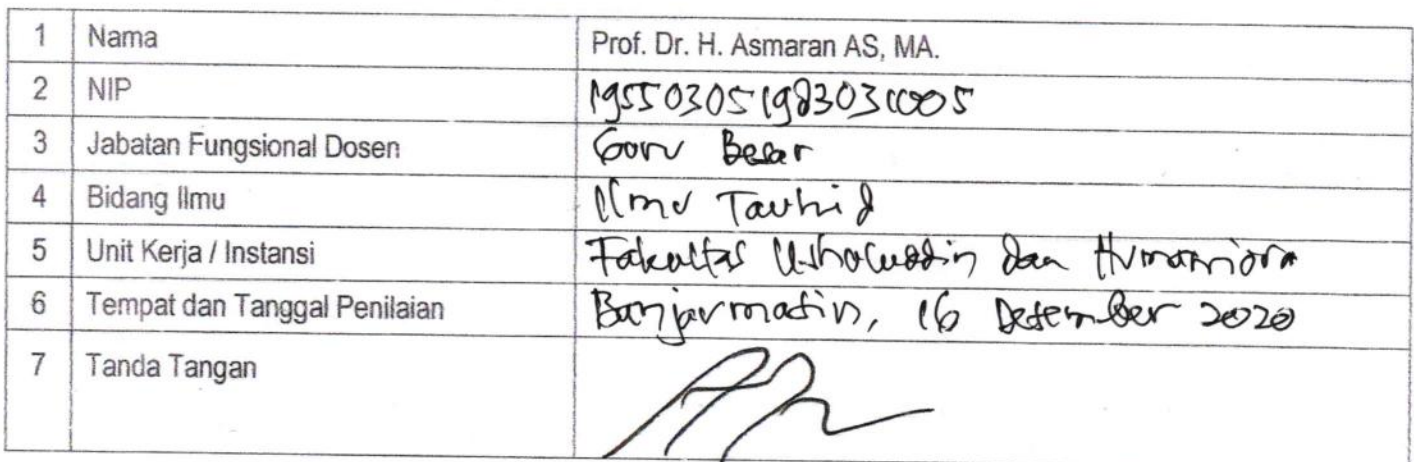 1 Nama Prof. Dr. H. Asmaran AS, MA.
2 NIP 195503051983031005
3 Jabatan Fungsional Dosen Guru Besar
4 Bidang Ilmu Ilmu Tauhid
5 Unit Kerja / Instansi Fakultas Ushuluddin dan Humaniora
6 Tempat dan Tanggal Penilaian Banjarmasin, 16 Desember 2020
7 Tanda Tangan